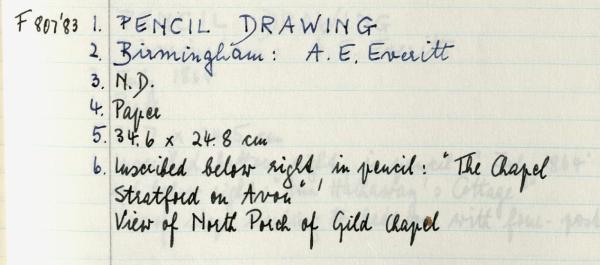 F 807'83 1. PENCIL DRAWING
2. Birmingham: A. E. Everitt
3. N.D.
4. Paper
5. 34.6 x 24.8 cm
6. Inscribed below right, in pencil: "The Chapel
Stratford on Avon"
View of North Porch of Gild Chapel